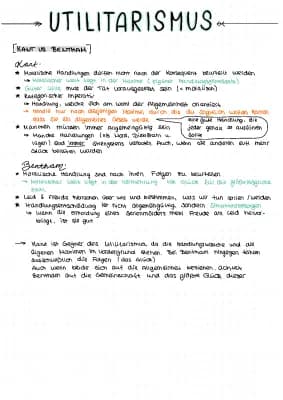 UTILITARISMUS
[KANT VS BENTHAM]
Kant:
* Moralische Handlungen dürfen nicht nach der Konsequenz beurteilt werden
→ Moralischer Wert liegt in der Maxime
* Guter Wille muss der Tat vorausgesetzt sein (= moralisch)
* Kategorische Imperativ
→ Handlung, welche sich am Wohl der Allgemeinheit orientiert
→ Handle nur nach derjenigen Maxime, durch die du zugleich wollen kannst
dass sie ein allgemeines Gesetz werde
eine gute Handlung, die
jeder genau so ausführen
sollte
* Maximen müssen immer
→ Manche Handlungen (z.B. Mord, Diebstahl,
Lügen) sind immer strengstens verboten. Auch, wenn die anderen auf mehr
Glück bereiten würden
Bentham:
* Moralische Handlung sind nach ihren Folgen zu beurteilen
→ Moralischer Wert liegt in der Vermehrung von Glück für die
* Leid & Freude herrschen über uns und bestimmen, was wir tun sollen/werden
* Handlungsentscheidung ist nicht
→ Wenn die Ermordung eines Serienmörders mehr Freude als Leid hervor-
bringt, ist sie gut
→ Kant ist Gegner des Utilitarismus, da die Handlungsweise und die
eigenen Maximen im Vordergrund stehen. Bei Bentham hingegen zählen
ausschließlich die Folgen (das Glück)
Auch wenn beide sich auf die Allgemeinheit beziehen, achtet
Bentham auf die Gemeinschaft und das größte Glück dieser